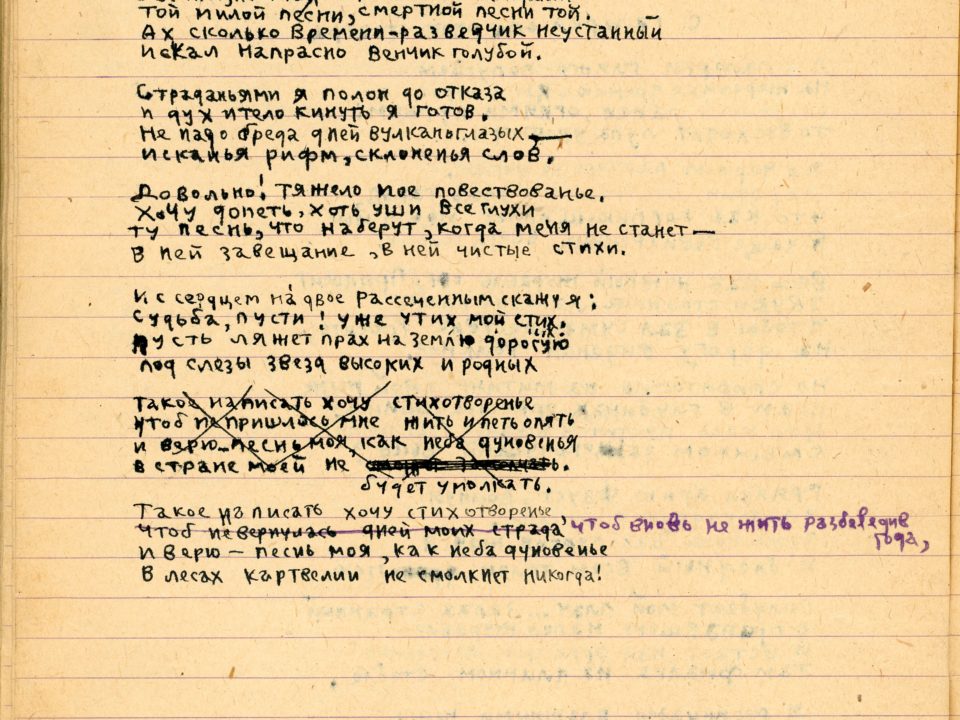 той милой песни, смертной песни той.
Ах сколько времени – разведчик неустанный
искал напрасно венчик голубой.
Страданьями я полон до отказа
и дух и тело кинуть я готов.
Не надо бреда дней вулканоглазых
исканья рифм, склоненья слов.
Довольно! тяжело мое повествованье.
Хочу допеть, хоть уши все глухи
ту песнь, что наберут, когда меня не станет —
в ней завещание, в ней чистые стихи.
И с сердцем на двое рассеченным скажу я:
Судьба, пусти! уже утих мой стих.
Пусть ляжет прах на землю дорогую
под слезы звезд высоких и родных
такое написать хочу стихотворенье
чтоб не пришлось мне жить и петь опять
и верю – песнь моя, как неба дуновенья
в стране моей не
будет умолкать.
Такое написать хочу стихотворенье
чтоб не вернулась дней моих страда, чтоб вновь не жить
года,
и верю – песнь моя, как неба дуновенье
в лесах картвелии не смолкнет никогда!